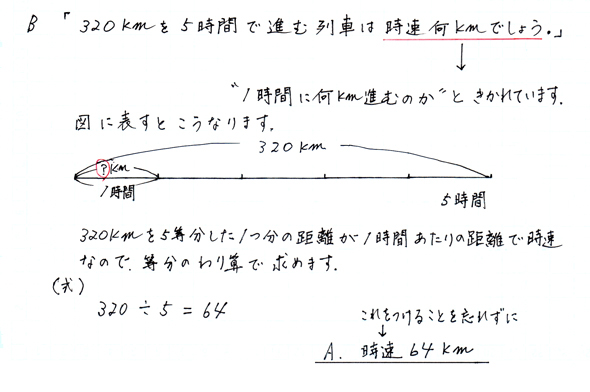 B 「320kmを5時間で進む列車は時速何kmでしょう。」
"1時間に何km進むのか"ときかれています.
図に表すとこうなります.
320km
?km
1時間
5時間
320kmを5等分した1つ分の距離が1時間あたりの距離で時速
なので、等分のわり算で求めます.
(式)
320÷5=64
これをつけることを忘れずに
A. 時速64km